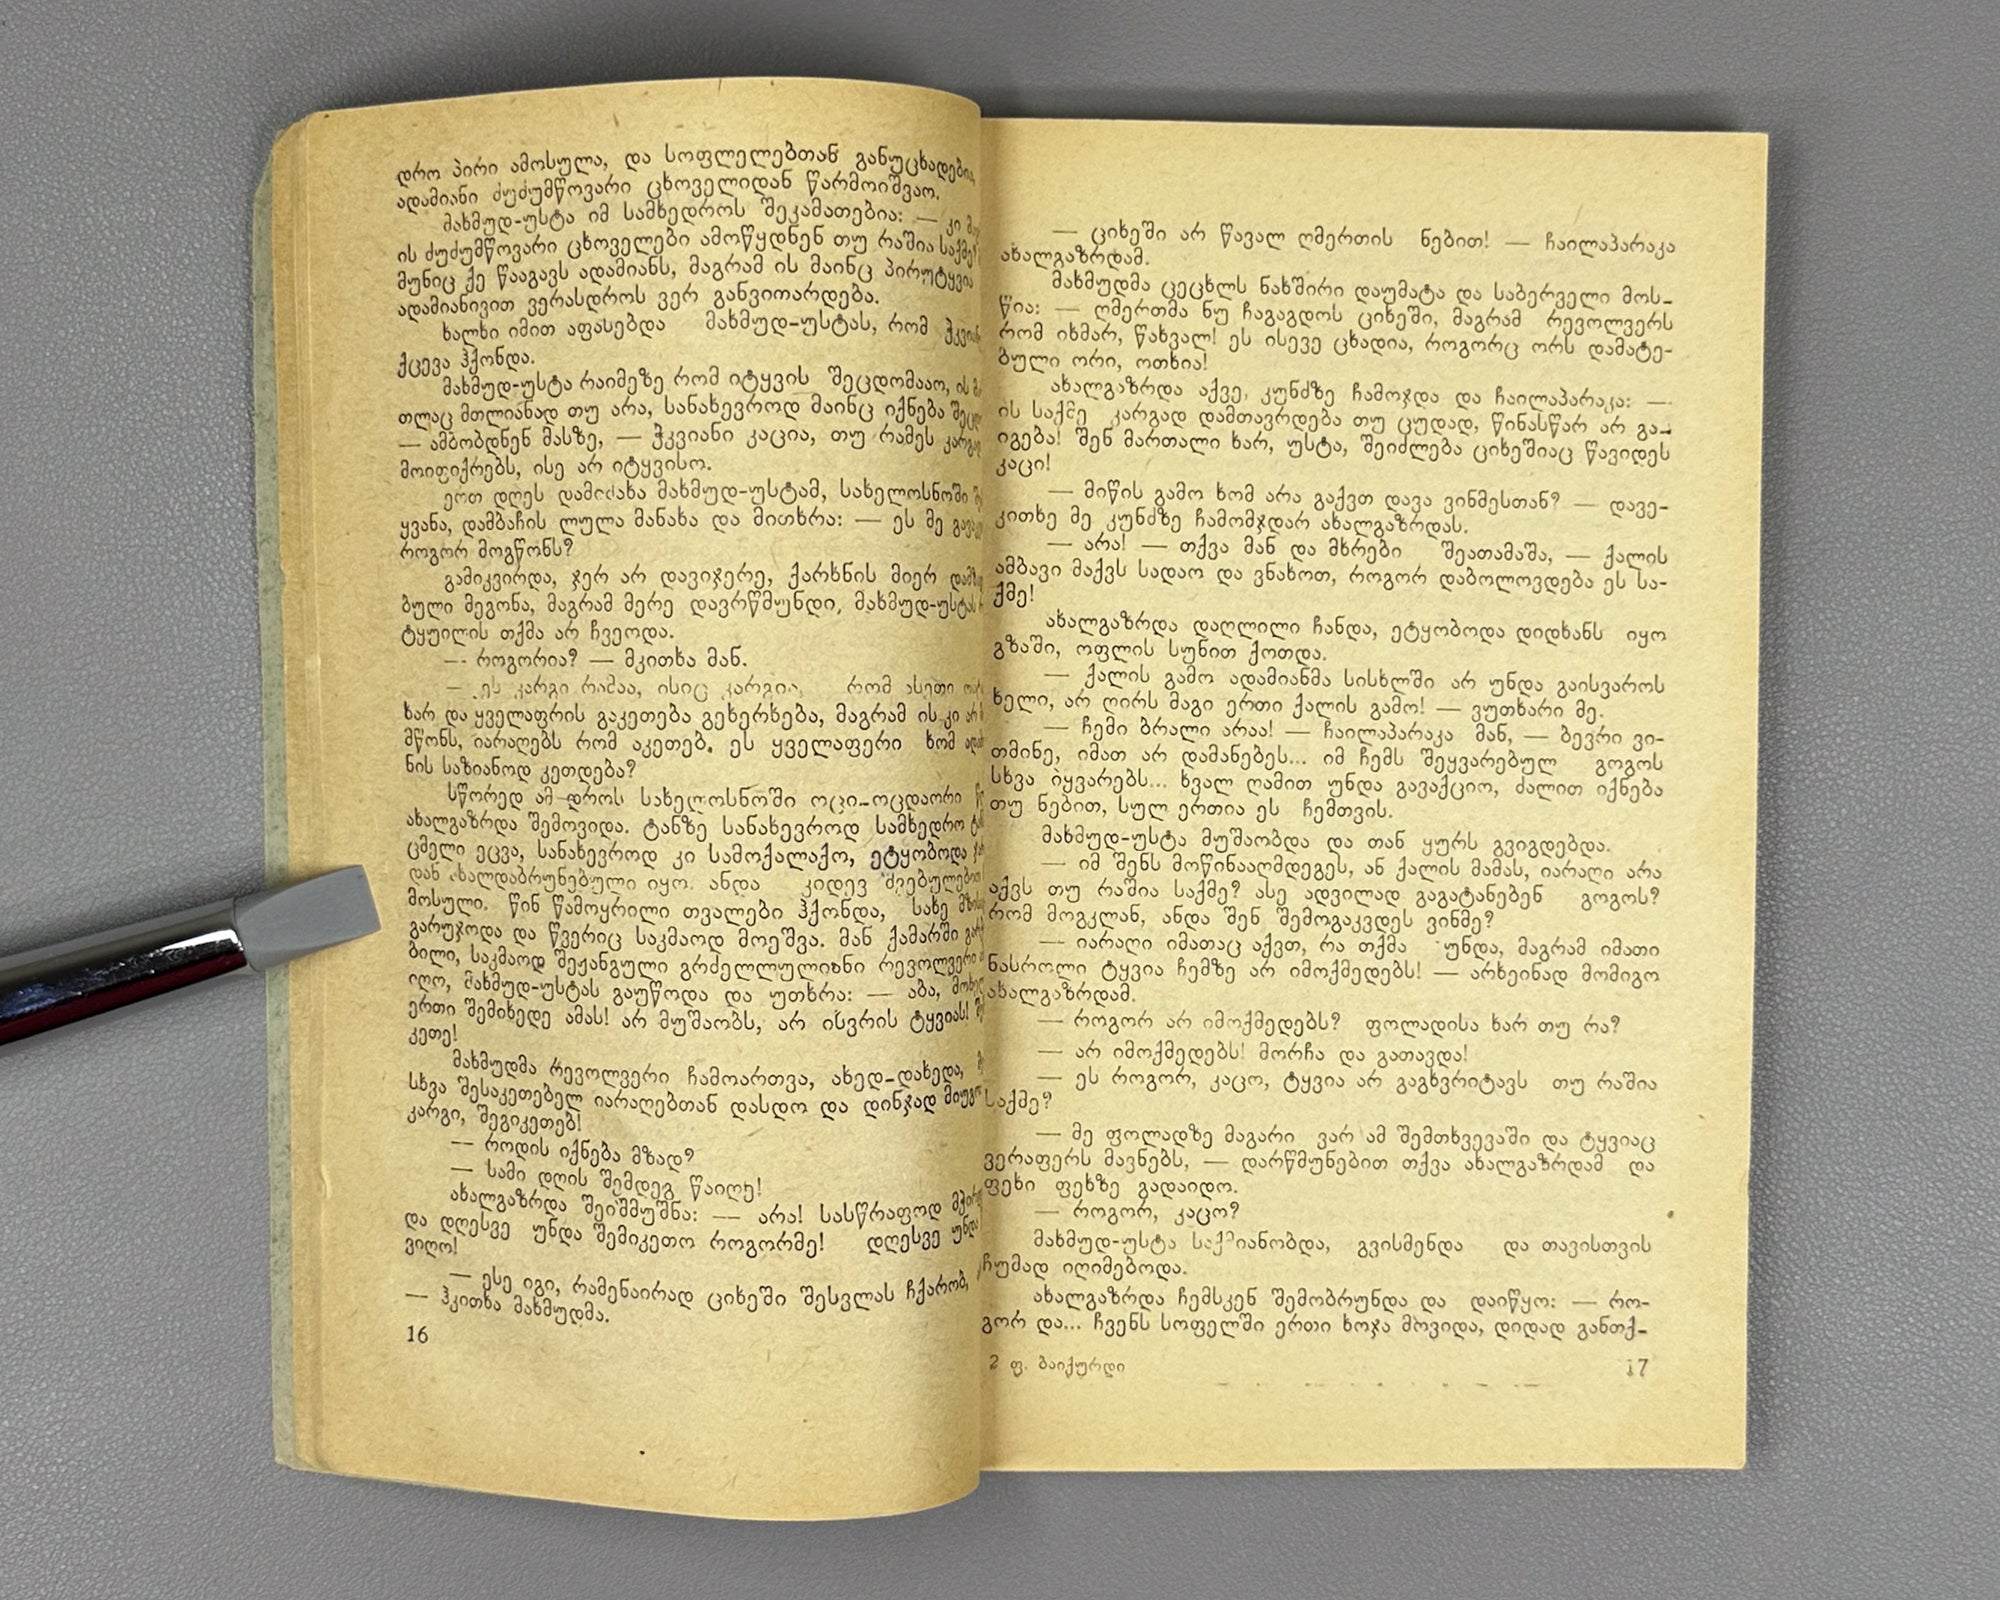 დრო პირი ამოსულა, და სოფლელებთან განუცხადებია,
ადამიანი ძუძუმწოვარი ცხოველიდან წარმოიშვაო.
მახმუდ-უსტა იმ სამხედროს შეკამათებია: — კი
ის ძუძუმწოვარი ცხოველები ამოწყდნენ თუ რაშია
მუნიც ქე წააგავს ადამიანს, მაგრამ ის მაინც პირუტყვია
ადამიანივით ვერასდროს ვერ განვითარდება.
ხალხი იმით აფასებდა მახმუდ-უსტას, რომ
ქცევა ჰქონდა.
მახმუდ-უსტა რაიმეზე რომ იტყვის შეცდომააო, ის
თლაც მთლიანად თუ არა, სანახევროდ მაინც იქნება
— ამბობდნენ მასზე, — ჰკვიანი კაცია, თუ რამეს
მოიფიქრებს, ისე არ იტყვისო.
ერთ დღეს დამიძახა მახმუდ-უსტამ, სახელოსნოში
ყვანა, დამბაჩის ლულა მანახა და მითხრა: — ეს მე
როგორ მოგწონს?
გამიკვირდა, ჯერ არ დავიჯერე, ქარხნის მიერ
ბული მეგონა, მაგრამ მერე დავრწმუნდი, მახმუდ-უსტას
ტყუილის თქმა არ ჩვეოდა.
— როგორია? — მკითხა მან.
— ეს კარგი რამაა, ისიც კარგია, რომ ასეთი
ხარ და ყველაფრის გაკეთება გეხერხება, მაგრამ ის კი
მწონს, იარაღებს რომ აკეთებ. ეს ყველაფერი ხომ
ნის საზიანოდ კეთდება?
სწორედ ამ დროს სახელოსნოში ოცი-ოცდაორი
ახალგაზრდა შემოვიდა. ტანზე სანახევროდ სამხედრო
ცმელი ეცვა, სანახევროდ კი სამოქალაქო, ეტყობოდა
დან ახალდაბრუნებული იყო ანდა კიდევ
მოსული. წინ წამოყრილი თვალები ჰქონდა, სახე
გარუჯოდა და წვერიც საკმაოდ მოეშვა. მან ქამარში
ბილი, საკმაოდ შეჟანგული გრძელლულიანი რევოლვერი
იღო, მახმუდ-უსტას გაუწოდა და უთხრა: — აბა,
ერთი შემიხედე ამას! არ მუშაობს, არ ისვრის ტყვიას!
კეთე!
მახმუდმა რევოლვერი ჩამოართვა, ახედ-დახედა,
სხვა შესაკეთებელ იარაღებთან დასდო და დინჯად
კარგი, შეგიკეთებ!
— როდის იქნება მზად?
— სამი დღის შემდეგ წაიღე!
ახალგაზრდა შეიშმუშნა: — არა! სასწრაფოდ
და დღესვე უნდა შემიკეთო როგორმე! დღესვე უნდა
ვიღო!
— ესე იგი, რამენაირად ციხეში შესვლას ჩქარობ,
— ჰკითხა მახმუდმა.
16
— ციხეში არ წავალ ღმერთის ნებით! — ჩაილაპარაკა
ახალგაზრდამ.
მახმუდმა ცეცხლს ნახშირი დაუმატა და საბერველი მოს-
წია: — ღმერთმა ნუ ჩაგაგდოს ციხეში, მაგრამ რევოლვერს
რომ იხმარ, წახვალ! ეს ისევე ცხადია, როგორც ორს დამატე-
ბული ორი, ოთხია!
ახალგაზრდა აქვე, კუნძზე ჩამოჯდა და ჩაილაპარაკა: —
ის საქმე კარგად დამთავრდება თუ ცუდად, წინასწარ არ გა-
იგება! შენ მართალი ხარ, უსტა, შეიძლება ციხეშიაც წავიდეს
კაცი!
— მიწის გამო ხომ არა გაქვთ დავა ვინმესთან? — დავე-
კითხე მე კუნძზე ჩამომჯდარ ახალგაზრდას.
— არა! — თქვა მან და მხრები შეათამაშა, — ქალის
ამბავი მაქვს სადაო და ვნახოთ, როგორ დაბოლოვდება ეს სა-
ქმე!
ახალგაზრდა დაღლილი ჩანდა, ეტყობოდა დიდხანს იყო
გზაში, ოფლის სუნით ქოთდა.
— ქალის გამო ადამიანმა სისხლში არ უნდა გაისვაროს
ხელი, არ ღირს მაგი ერთი ქალის გამო! — ვუთხარი მე.
— ჩემი ბრალი არაა! — ჩაილაპარაკა მან, — ბევრი ვი-
თმინე, იმათ არ დამანებეს... იმ ჩემს შეყვარებულ გოგოს
სხვა იყვარებს... ხვალ ღამით უნდა გავაქციო, ძალით იქნება
თუ ნებით, სულ ერთია ეს ჩემთვის.
მახმუდ-უსტა მუშაობდა და თან ყურს გვიგდებდა.
— იმ შენს მოწინააღმდეგეს, ან ქალის მამას, იარაღი არა
აქვს თუ რაშია საქმე? ასე ადვილად გაგატანებენ გოგოს?
რომ მოგკლან, ანდა შენ შემოგაკვდეს ვინმე?
— იარაღი იმათაც აქვთ, რა თქმა უნდა, მაგრამ იმათი
ნასროლი ტყვია ჩემზე არ იმოქმედებს! — არხეინად მომიგო
ახალგაზრდამ.
— როგორ არ იმოქმედებს? ფოლადისა ხარ თუ რა?
— არ იმოქმედებს! მორჩა და გათავდა!
— ეს როგორ, კაცო, ტყვია არ გაგხვრიტავს თუ რაშია
საქმე?
— მე ფოლადზე მაგარი ვარ ამ შემთხვევაში და ტყვიაც
ვერაფერს მავნებს, — დარწმუნებით თქვა ახალგაზრდამ და
ფეხი ფეხზე გადაიდო.
— როგორ, კაცო?
მახმუდ-უსტა საქმიანობდა, გვისმენდა და თავისთვის
ჩუმად იღიმებოდა.
ახალგაზრდა ჩემსკენ შემობრუნდა და დაიწყო: — რო-
გორ და... ჩვენს სოფელში ერთი ხოჯა მოვიდა, დიდად განთქ-
2 ფ. ბაიქურდი
17